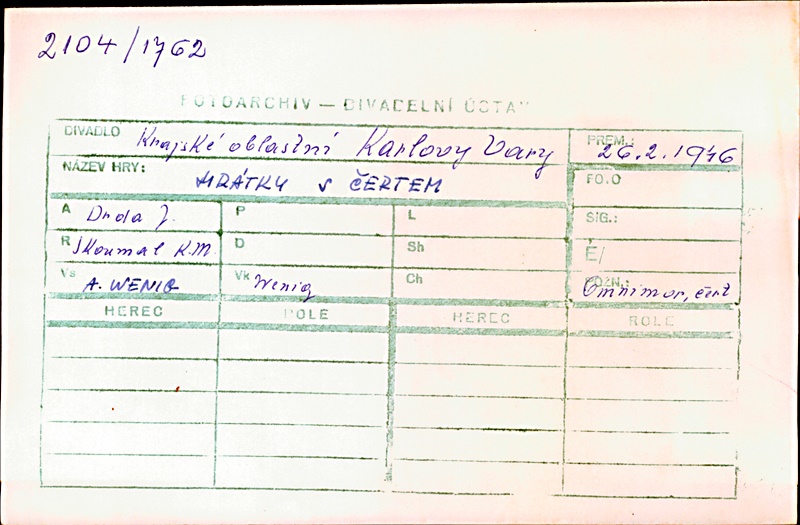 2104/1762
FOTOARCHIV — DIVADELNÍ ÚSTAV
DIVADLO Krajské oblastní Karlovy Vary PREM.: 26.2.1946
NÁZEV HRY: HRÁTKY S ČERTEM FOTO
A Drda J. P L SIG.:
R Škoumal K.M. D Sh Č/
Vs A. WENIG Vk Wenig Ch POZN.: Omnimor, čert
HEREC ROLE HEREC ROLE